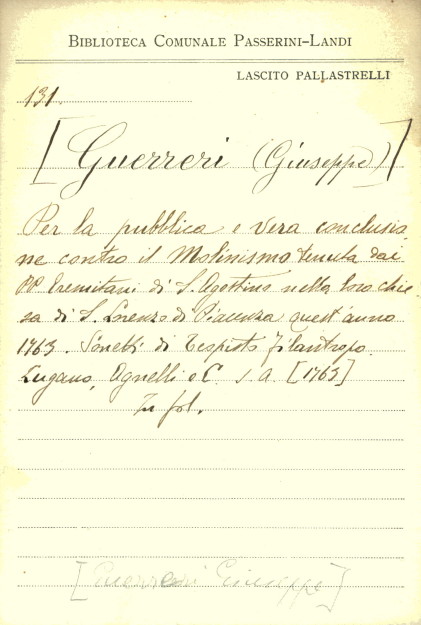 BIBLIOTECA COMUNALE PASSERINI-LANDI
LASCITO PALLASTRELLI
131.
[Guerreri (Giuseppe)]
Per la pubblica e vera conclusio
ne contro il Molinismo tenuta dai
PP Eremitani di S. Agostino nella loro chie
sa di S. Lorenzo di Piacenza quest'anno
1763. Sonetti di Tespisto filantropo.
Lugano, Agnelli e C. s. a. [1763]
In fol.
[Guerreri Giuseppe]